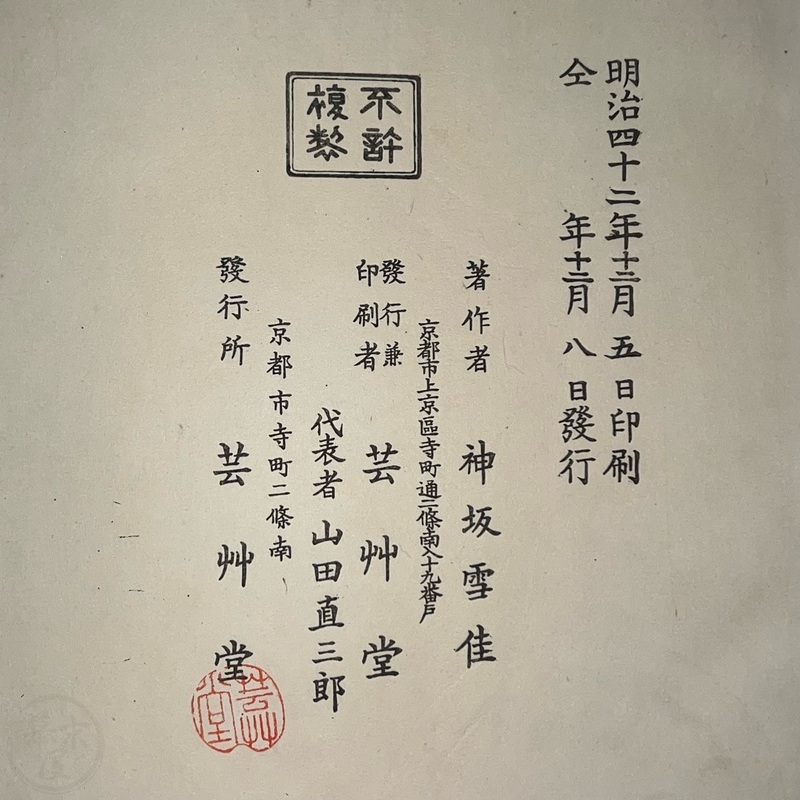 明治四十二年十二月五日印刷
仝年十二月八日發行
不許
複製
著作者 神坂雪佳
京都市上京區寺町通二條南入十九番戶
發行兼
印刷者
芸艸堂
代表者 山田直三郎
京都市寺町二條南
發行所 芸艸堂
芸艸堂